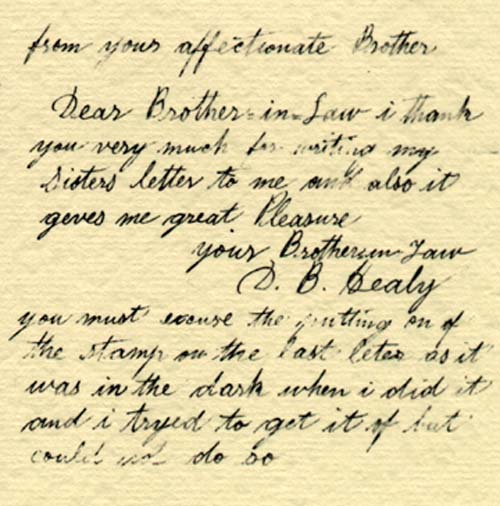 from your affectionate Brother
Dear Brother-in-Law i thank
you very much for writing my
sisters letter to me and also it
geves me great Pleasure
your Brother-in-Law
D. B. Healy
you must excuse the putting on of
the stamp on the last leter as it
was in the dark when i did it
and i tryed to get it of but
could not do so